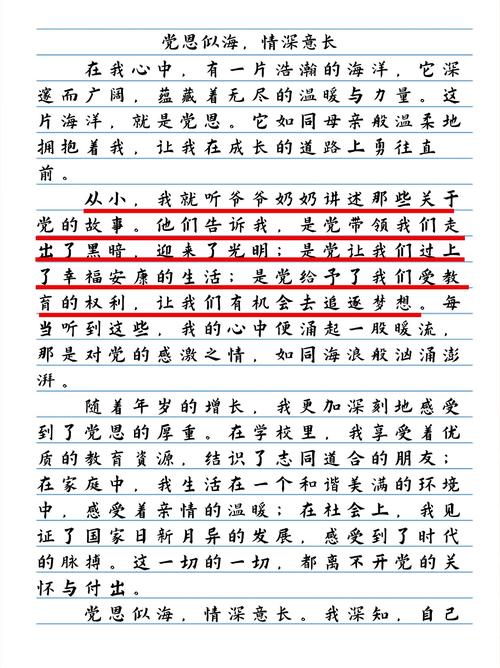 党恩似海，情深意长
在我心中，有一片浩瀚的海洋，它深
邃而广阔，蕴藏着无尽的温暖与力量。这
片海洋，就是党恩。它如同母亲般温柔地
拥抱着我，让我在成长的道路上勇往直
前。
从小，我就听爷爷奶奶讲述那些关于
党的故事。他们告诉我，是党带领我们走
出了黑暗，迎来了光明；是党让我们过上
了幸福安康的生活；是党给予了我们受教
育的权利，让我们有机会去追逐梦想。每
当听到这些，我的心中便涌起一股暖流，
那是对党的感激之情，如同海浪般汹涌澎
湃。
随着年岁的增长，我更加深刻地感受
到了党恩的厚重。在学校里，我享受着优
质的教育资源，结识了志同道合的朋友；
在家庭中，我生活在一个和谐美满的环境
中，感受着亲情的温暖；在社会上，我见
证了国家日新月异的发展，感受到了时代
的脉搏。这一切的一切，都离不开党的关
怀与付出。
党恩似海，情深意长。我深知，自己